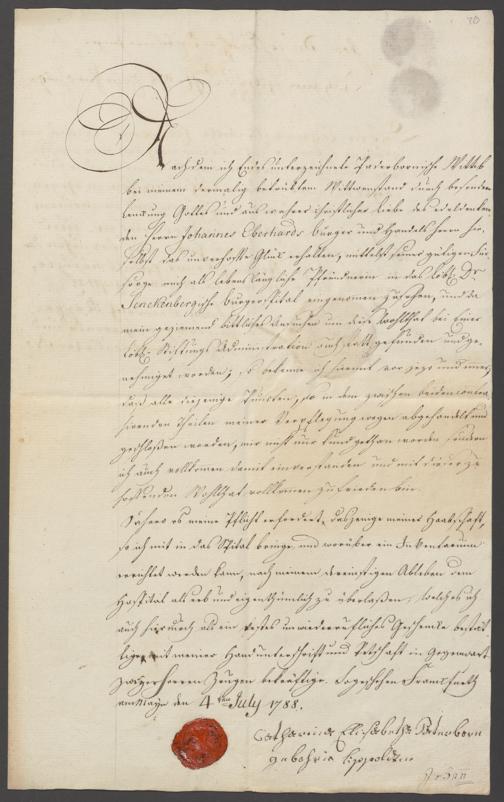 20
Nachdem ich Endes unterzeichnete Paderbornische Wittib
bei meinem dermalig betrübten Wittwenstand durch besondere
Lenkung Gottes und aus wahrer christlicher Liebe des edeldenken
den Herrn Johannes Eberhards Bürger und Handels Herrn hie
selbst das unverhofte Glük erhalten, mittelst seiner gütigen Für
sorge mich als lebenslängliche Pfründnerin in das löbl. Dr
Senckenbergische Bürgerspital eingenommen zu sehen, und da
mein geziemend bittliches Ansuchen um diese Wohlthat bei Einer
löbl. Stiftungs Administration auch statt gefunden und ge
nehmiget worden; so bekenne ich hiermit vor jezo und immer,
daß alle diejenige Puncten, so in dem zwischen beiden contra
hirenden Theilen meiner Verpflegung wegen abgehandelt und
geschloßen worden, mir nicht nur kund gethan worden sondern
ich auch vollkommen damit einverstanden und mit dieser zu
hoffenden Wohlthat vollkommen zufrieden bin.
Daher es meine Pflicht erfordert, dasjenige meiner Haabschaft,
so ich mit in das Spital bringe und worüber ein Inventarium
errichtet werden kann, nach meinem dereinstigen Ableben dem
Hospital als erb und eigenthümlich zu überlaßen, welches ich
auch hierdurch als ein vestes unwiederrufliches Geschenke bestät
tige, mit meiner Handunterschrift und Petschaft in Gegenwart
zweyer Herren Zeugen bekräftige. So geschehen Frankfurth
am Mayn den 4ten July 1788.
Catharina Elisabetha Paterborn
gebohrne Lippoldin